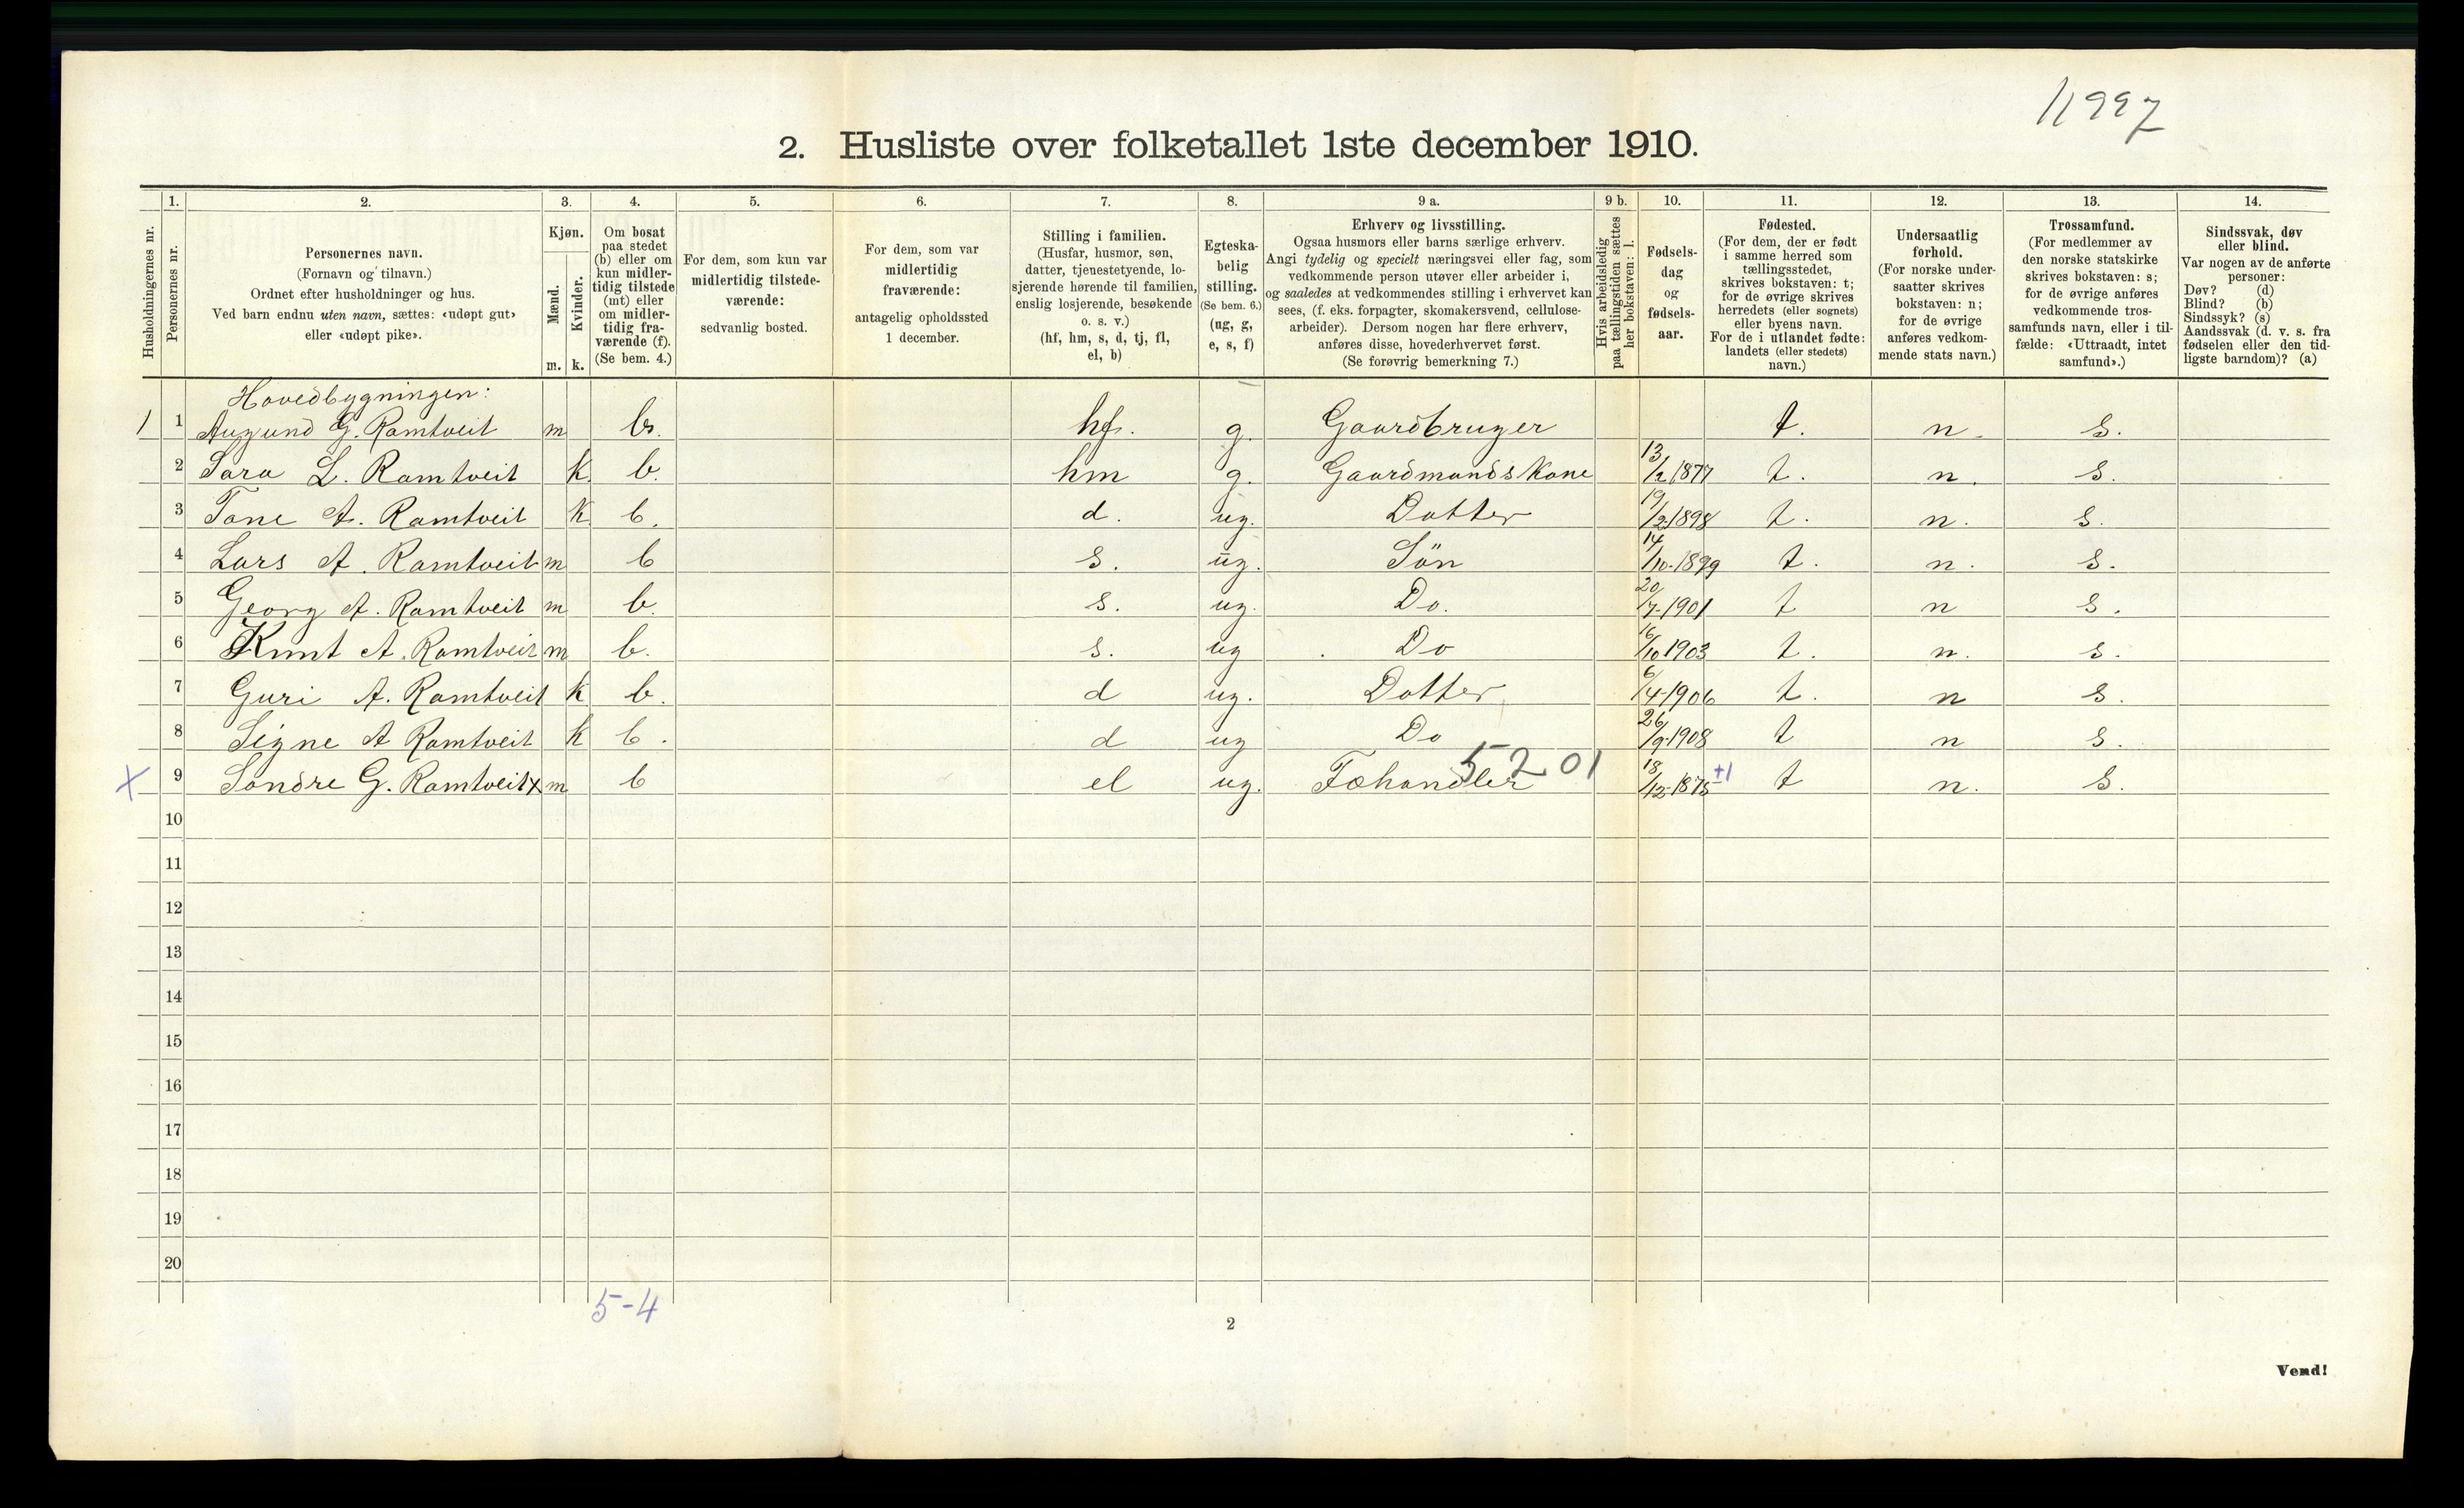 11997
2. Husliste over folketallet 1ste december 1910.
1. 2. 3. 4. 5. 6. 7. 8. 9 a. 9 b. 10. 11. 12. 13. 14.
Husholdningernes nr.
Personernes nr.
Personernes navn.
(Fornavn og tilnavn.)
Ordnet efter husholdninger og hus.
Ved barn endnu uten navn, sættes: «udøpt gut»
eller «udøpt pike».
Kjøn.
Mænd.
Kvinder.
m. k.
Om bosat
paa stedet
(b) eller om
kun midler-
tidig tilstede
(mt) eller
om midler-
tidig fra-
værende (f).
(Se bem. 4.)
For dem, som kun var
midlertidig tilstede-
værende:
sedvanlig bosted.
For dem, som var
midlertidig
fraværende:
antagelig opholdssted
1 december.
Stilling i familien.
(Husfar, husmor, søn,
datter, tjenestetyende, lo-
sjerende hørende til familien,
enslig losjerende, besøkende
o. s. v.)
(hf, hm, s, d, tj, fl,
el, b)
Egteska-
belig
stilling.
(Se bem. 6.)
(ug, g,
e, s, f)
Erhverv og livsstilling.
Ogsaa husmors eller barns særlige erhverv.
Angi tydelig og specielt næringsvei eller fag, som
vedkommende person utøver eller arbeider i,
og saaledes at vedkommendes stilling i erhvervet kan
sees, (f. eks. forpagter, skomakersvend, cellulose-
arbeider). Dersom nogen har flere erhverv,
anføres disse, hovederhvervet først.
(Se forøvrig bemerkning 7.)
Hvis arbeidsledig
paa tællingstiden sættes
her bokstaven: l.
Fødsels-
dag
og
fødsels-
aar.
Fødested.
(For dem, der er født
i samme herred som
tællingsstedet,
skrives bokstaven: t;
for de øvrige skrives
herredets (eller sognets)
eller byens navn.
For de i utlandet fødte:
landets (eller stedets)
navn.)
Undersaatlig
forhold.
(For norske under-
saatter skrives
bokstaven: n;
for de øvrige
anføres vedkom-
mende stats navn.)
Trossamfund.
(For medlemmer av
den norske statskirke
skrives bokstaven: s;
for de øvrige anføres
vedkommende tros-
samfunds navn, eller i til-
fælde: «Uttraadt, intet
samfund».)
Sindssvak, døv
eller blind.
Var nogen av de anførte
personer:
Døv? (d)
Blind? (b)
Sindssyk? (s)
Aandssvak (d. v. s. fra
fødselen eller den tid-
ligste barndom)? (a)
Hovedbygningen:
1 1 Augund G. Ramtveit m b. hf. g. Gaardbruger t. n. s.
2 Sara L. Ramtveit k b. hm g. Gaardmandskone 13/2 1877 t. n. s.
3 Tone A. Ramtveit k b. d. ug. Datter 19/2 1898 t. n. s.
4 Lars A. Ramtveit m b s. ug. Sön 14/10-1899 t. n. s.
5 Georg A. Ramtveit m b. s. ug. Do. 20/7-1901 t n s.
6 Knut A. Ramtveit m b. s. ug Do 16/10 1903 t. n. s.
7 Guri A. Ramtveit k b. d ug. Datter 6/4-1906 t. n s.
8 Signe A Ramtveit k b. d ug Do 26/9-1908 t n s.
x 9 Sondre G. Ramtveit x m b el ug. Fæhandler 5201 18/12-1875 +1 t n. s.
10
11
12
13
14
15
16
17
18
19
20
5-4
2
Vend!